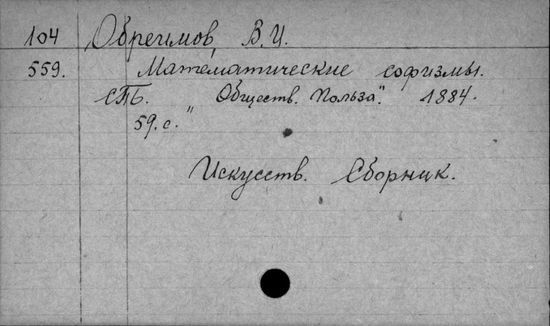 104 Обреимов, В.И.
559. Математические софизмы.
СПб. "Обществ. Польза". 1884.
59.с.
Искусств. Сборник.